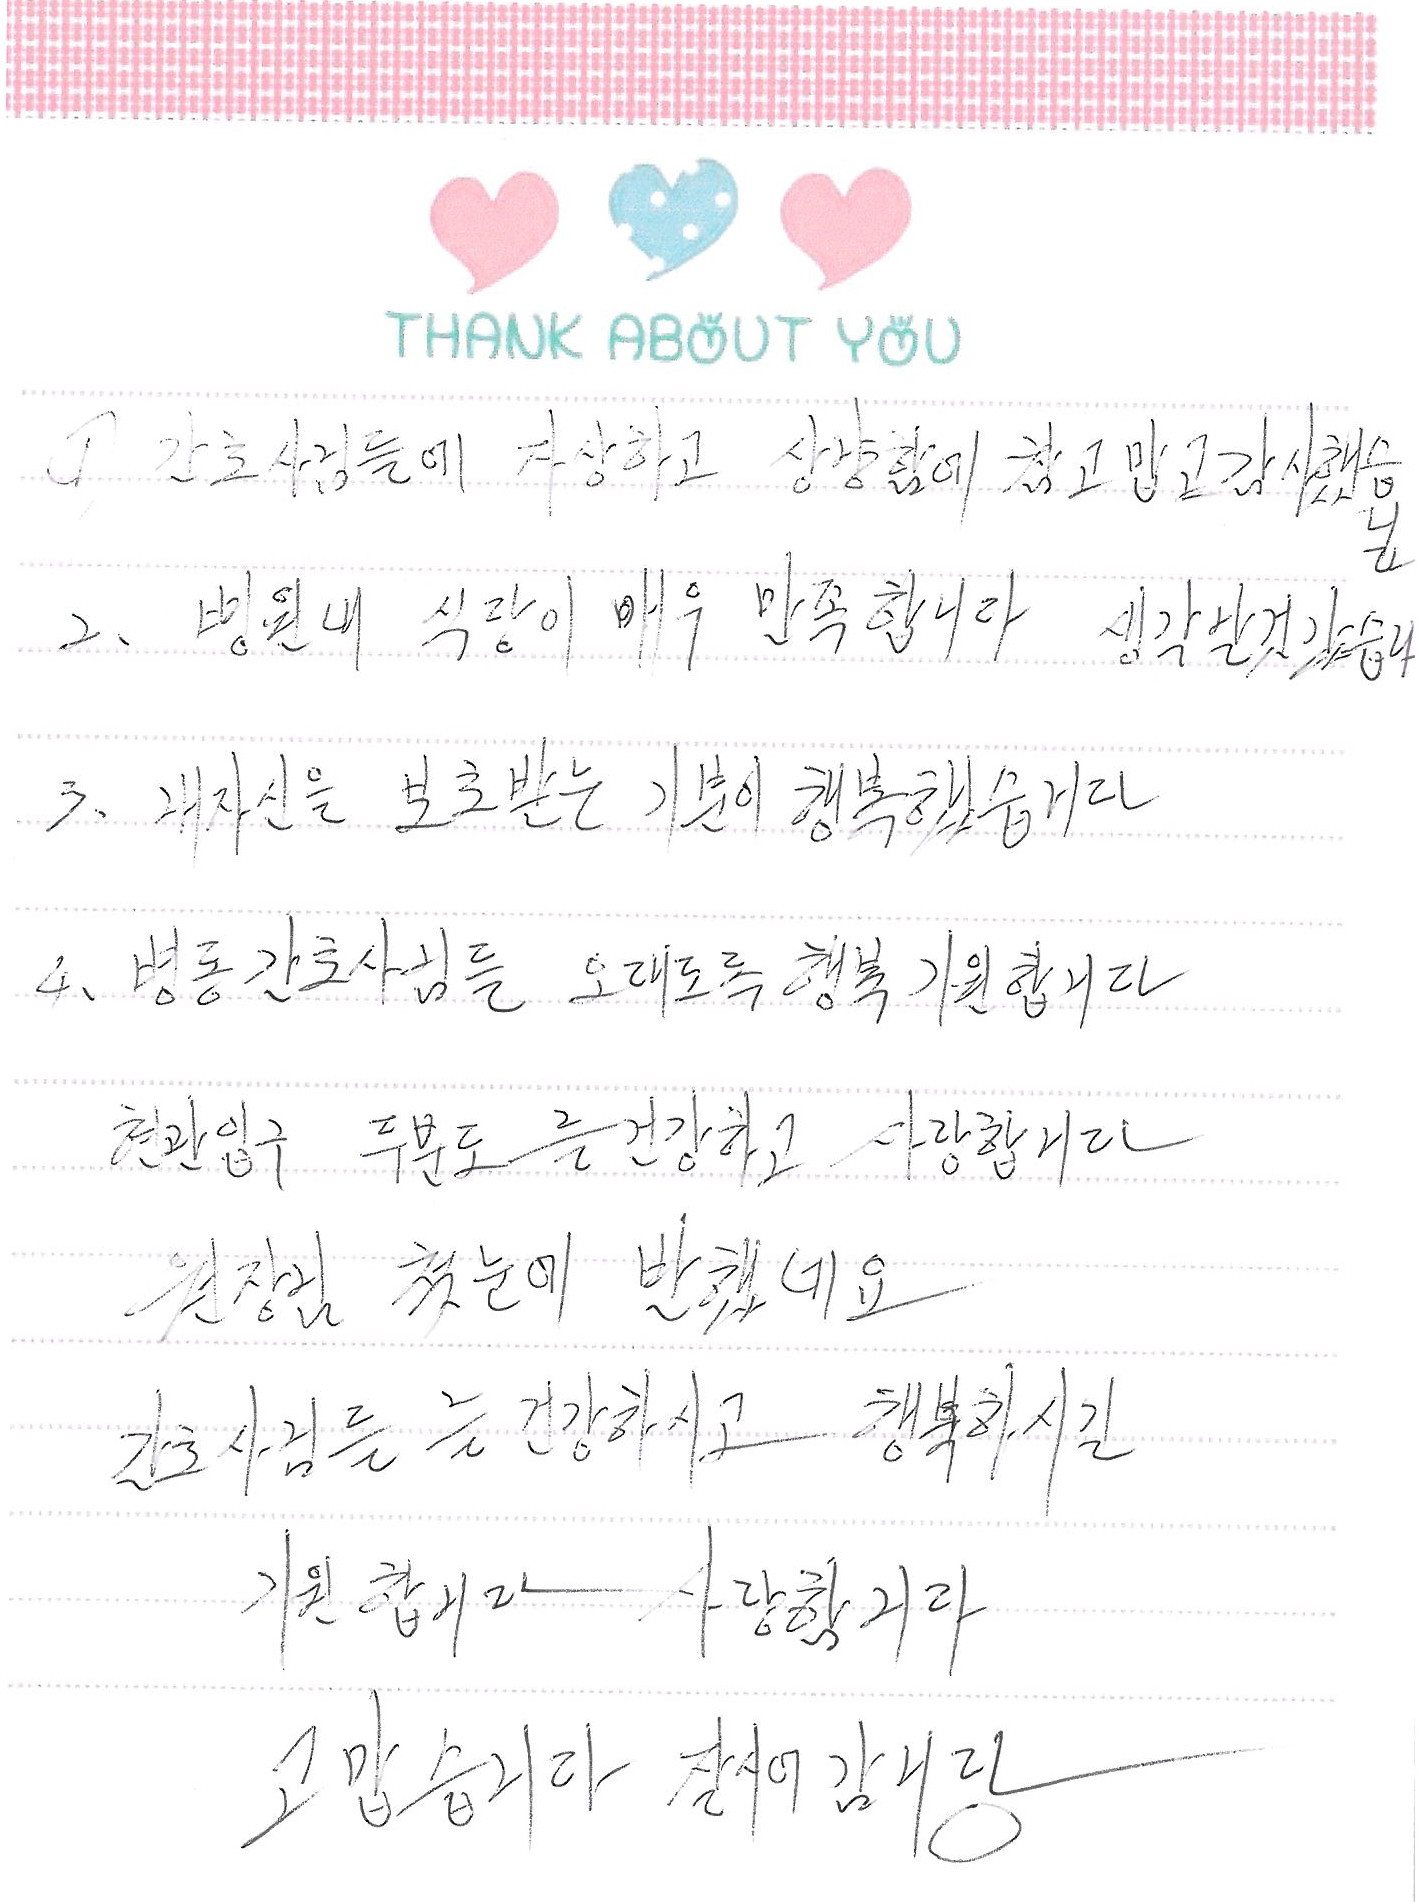 THANK ABOUT YOU
1 간호사님들에 자상하고 상량함에 참 고맙고 감사했습
니다
2. 병원내 식당이 매우 만족합니다 생각날것같습니다
3. 내자신을 보호받는 기분이 행복했습니다
4. 병동 간호사님들 오래도록 행복 기원합니다
현관입구 두분도 늘 건강하고 사랑합니다
원장님 첫눈에 반했네요
간호사님들 늘 건강하시고 행복하시길
기원합니다 사랑합니다
고맙습니다 잘쉬어 갑니당